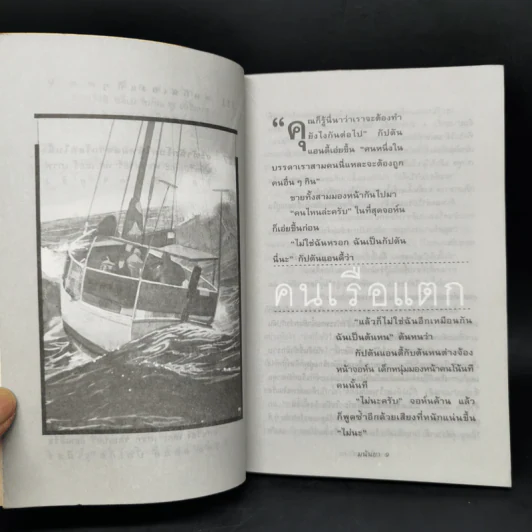 “คุณก็รู้นี่นาว่าเราจะต้องทำ
ยังไงกันต่อไป” กัปตัน
แอนดี้เอ่ยขึ้น “คนหนึ่งใน
บรรดาเราสามคนนี่แหละจะต้องถูก
คนอื่น ๆ กิน”
ชายทั้งสามมองหน้ากันไปมา
“คนไหนล่ะครับ” ในที่สุดจอห์น
ก็เอ่ยขึ้นก่อน
“ไม่ใช่ฉันหรอก ฉันเป็นกัปตัน
นี่นะ” กัปตันแอนดี้ว่า
คนเรือแตก
“แล้วก็ไม่ใช่ฉันอีกเหมือนกัน
ฉันเป็นต้นหน” ต้นหนว่า
กัปตันแอนดี้กับต้นหนต่างจ้อง
หน้าจอห์น เด็กหนุ่มมองหน้าคนโน้นที
คนนี้ที
“ไม่นะครับ” จอห์นค้าน แล้ว
ก็พูดซ้ำอีกด้วยเสียงที่หนักแน่นขึ้น
“ไม่นะ”
มนันยา